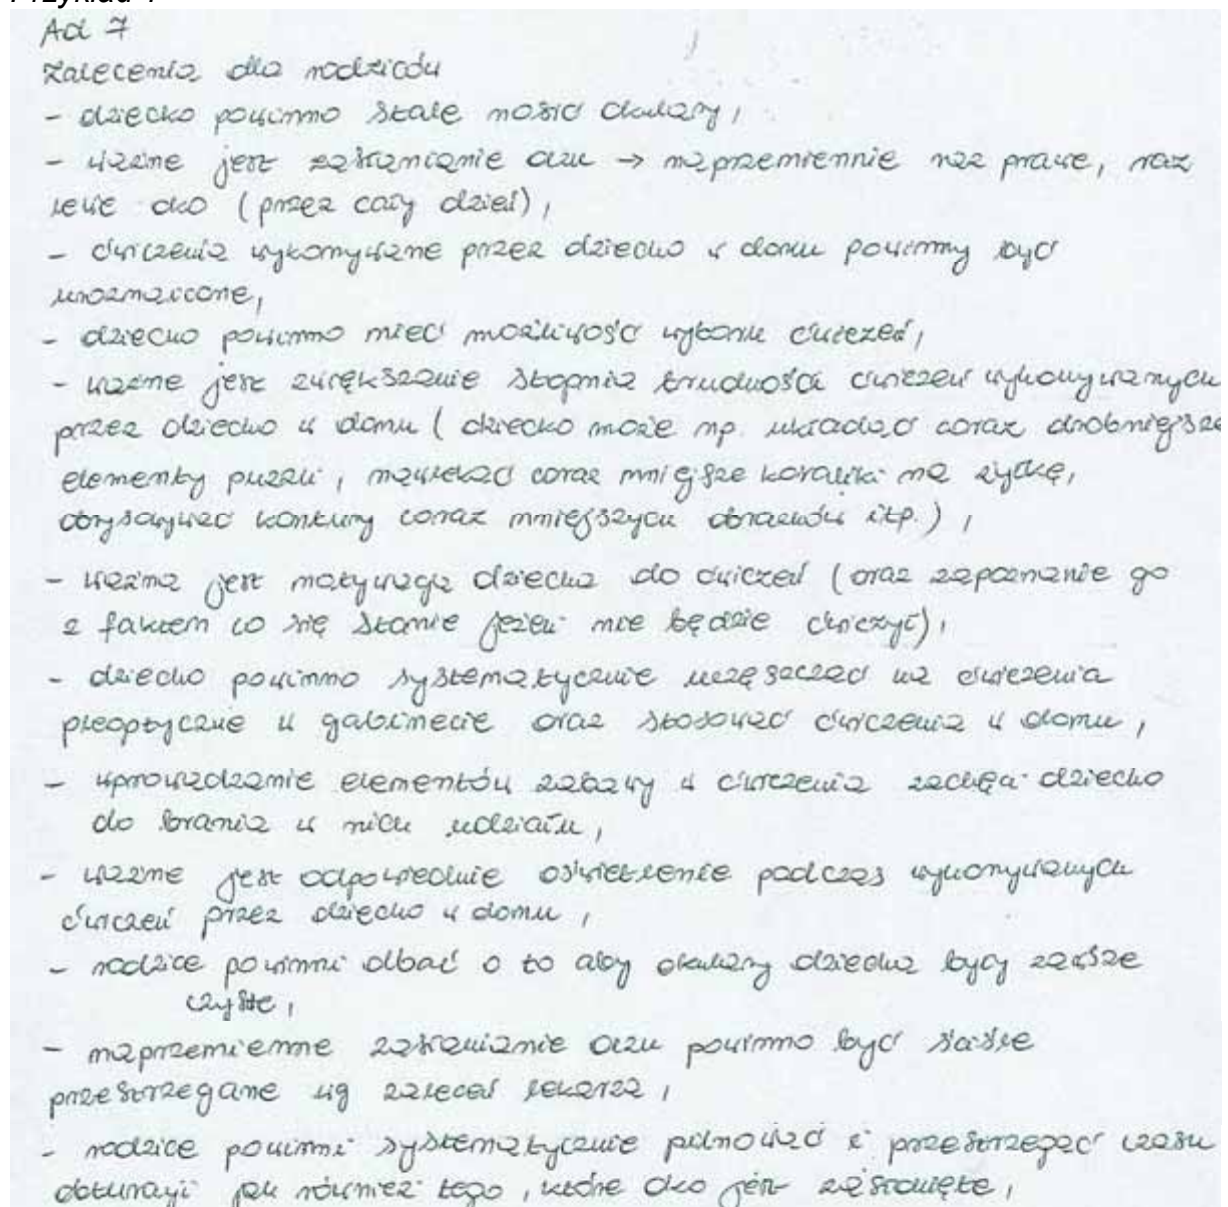 Przykład 1
Ad 7
Zalecenia dla rodziców
- dziecko powinno stale nosić okulary,
- ważne jest zasłanianie oczu → naprzemiennie raz prawe, raz
lewe oko (przez cały dzień),
- ćwiczenia wykonywane przez dziecko w domu powinny być
urozmaicone,
- dziecko powinno mieć możliwość wyboru ćwiczeń,
- ważne jest zwiększanie stopnia trudności ćwiczeń wykonywanych
przez dziecko w domu (dziecko może np. układać coraz drobniejsze
elementy puzzli, nawlekać coraz mniejsze koraliki na żyłkę,
obrysowywać kontury coraz mniejszych obrazków itp.),
- ważna jest motywacja dziecka do ćwiczeń (oraz zapoznanie go
z faktem co się stanie jeżeli nie będzie ćwiczyć),
- dziecko powinno systematycznie uczęszczać na ćwiczenia
pleoptyczne w gabinecie oraz stosować ćwiczenia w domu,
- wprowadzanie elementów zabawy w ćwiczenia zachęca dziecko
do brania w nich udziału,
- ważne jest odpowiednie oświetlenie podczas wykonywanych
ćwiczeń przez dziecko w domu,
- rodzice powinni dbać o to aby okulary dziecka były zawsze
czyste,
- naprzemienne zasłanianie oczu powinno być ściśle
przestrzegane wg zaleceń lekarza,
- rodzice powinni systematycznie pilnować i przestrzegać czasu
obturacji jak również tego, które oko jest zasłonięte,